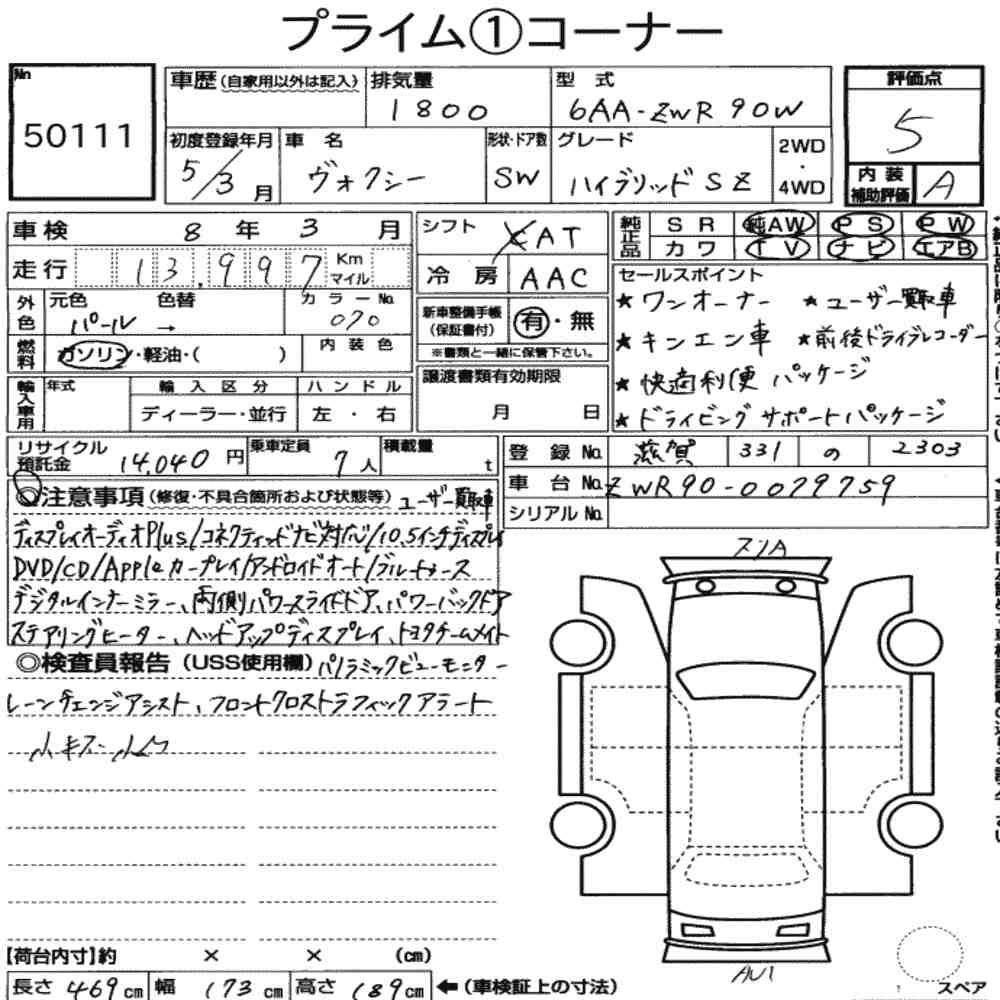 プライム①コーナー
No
50111
車歴(自家用以外は記入)
排気量
1800
型式
6AA-ZWR90W
評価点
5
初度登録年月
5/3月
車名
ヴォクシー
形状・ドア数
SW
グレード
ハイブリッドSZ
2WD
・
4WD
内装
補助評価
A
車検 8年3月
走行 13,997 Km
マイル
シフト
AT
冷房 AAC
純正品
SR 純AW PS PW
カワ TV ナビ エアB
外色
元色 色替
パール →
カラーNo.
070
燃料
ガソリン・軽油・( )
内装色
新車整備手帳
(保証書付)
有・無
※書類と一緒に保管下さい。
譲渡書類有効期限
月 日
セールスポイント
★ワンオーナー ★ユーザー買取車
★キンエン車 ★前後ドライブレコーダー
★快適利便パッケージ
★ドライビングサポートパッケージ
輸入車用
年式
輸入区分
ディーラー・並行
ハンドル
左・右
リサイクル
預託金
14,040円
乗車定員
7人
積載量
t
登録No. 滋賀 331 の 2303
車台No. ZWR90-0079759
シリアルNo.
◎注意事項(修復・不具合箇所および状態等)ユーザー買取車
ディスプレイオーディオPlus/コネクティッドナビ対応/10.5インチディスプレイ
DVD/CD/Appleカープレイ/アンドロイドオート/ブルートゥース
デジタルインナーミラー、両側パワースライドドア、パワーバックドア
ステアリングヒーター、ヘッドアップディスプレイ、トヨタチームメイト
◎検査員報告(USS使用欄)パノラミックビューモニター
レーンチェンジアシスト、フロントクロストラフィックアラート
小キズ
【荷台内寸】約 × × (cm)
長さ469cm 幅173cm 高さ189cm ←(車検証上の寸法)
スペア